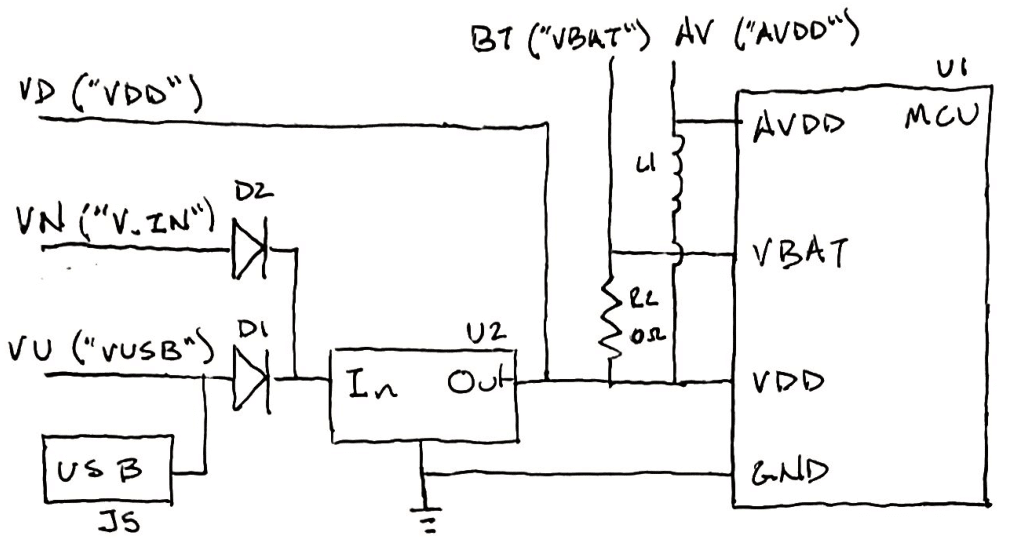 BT ("VBAT") AV ("AVDD")
VD ("VDD")
U1
MCU
AVDD
L1
D2
VN ("V.IN")
VBAT
R2
0Ω
D1
U2
VU ("VUSB")
In
Out
VDD
USB
GND
J5